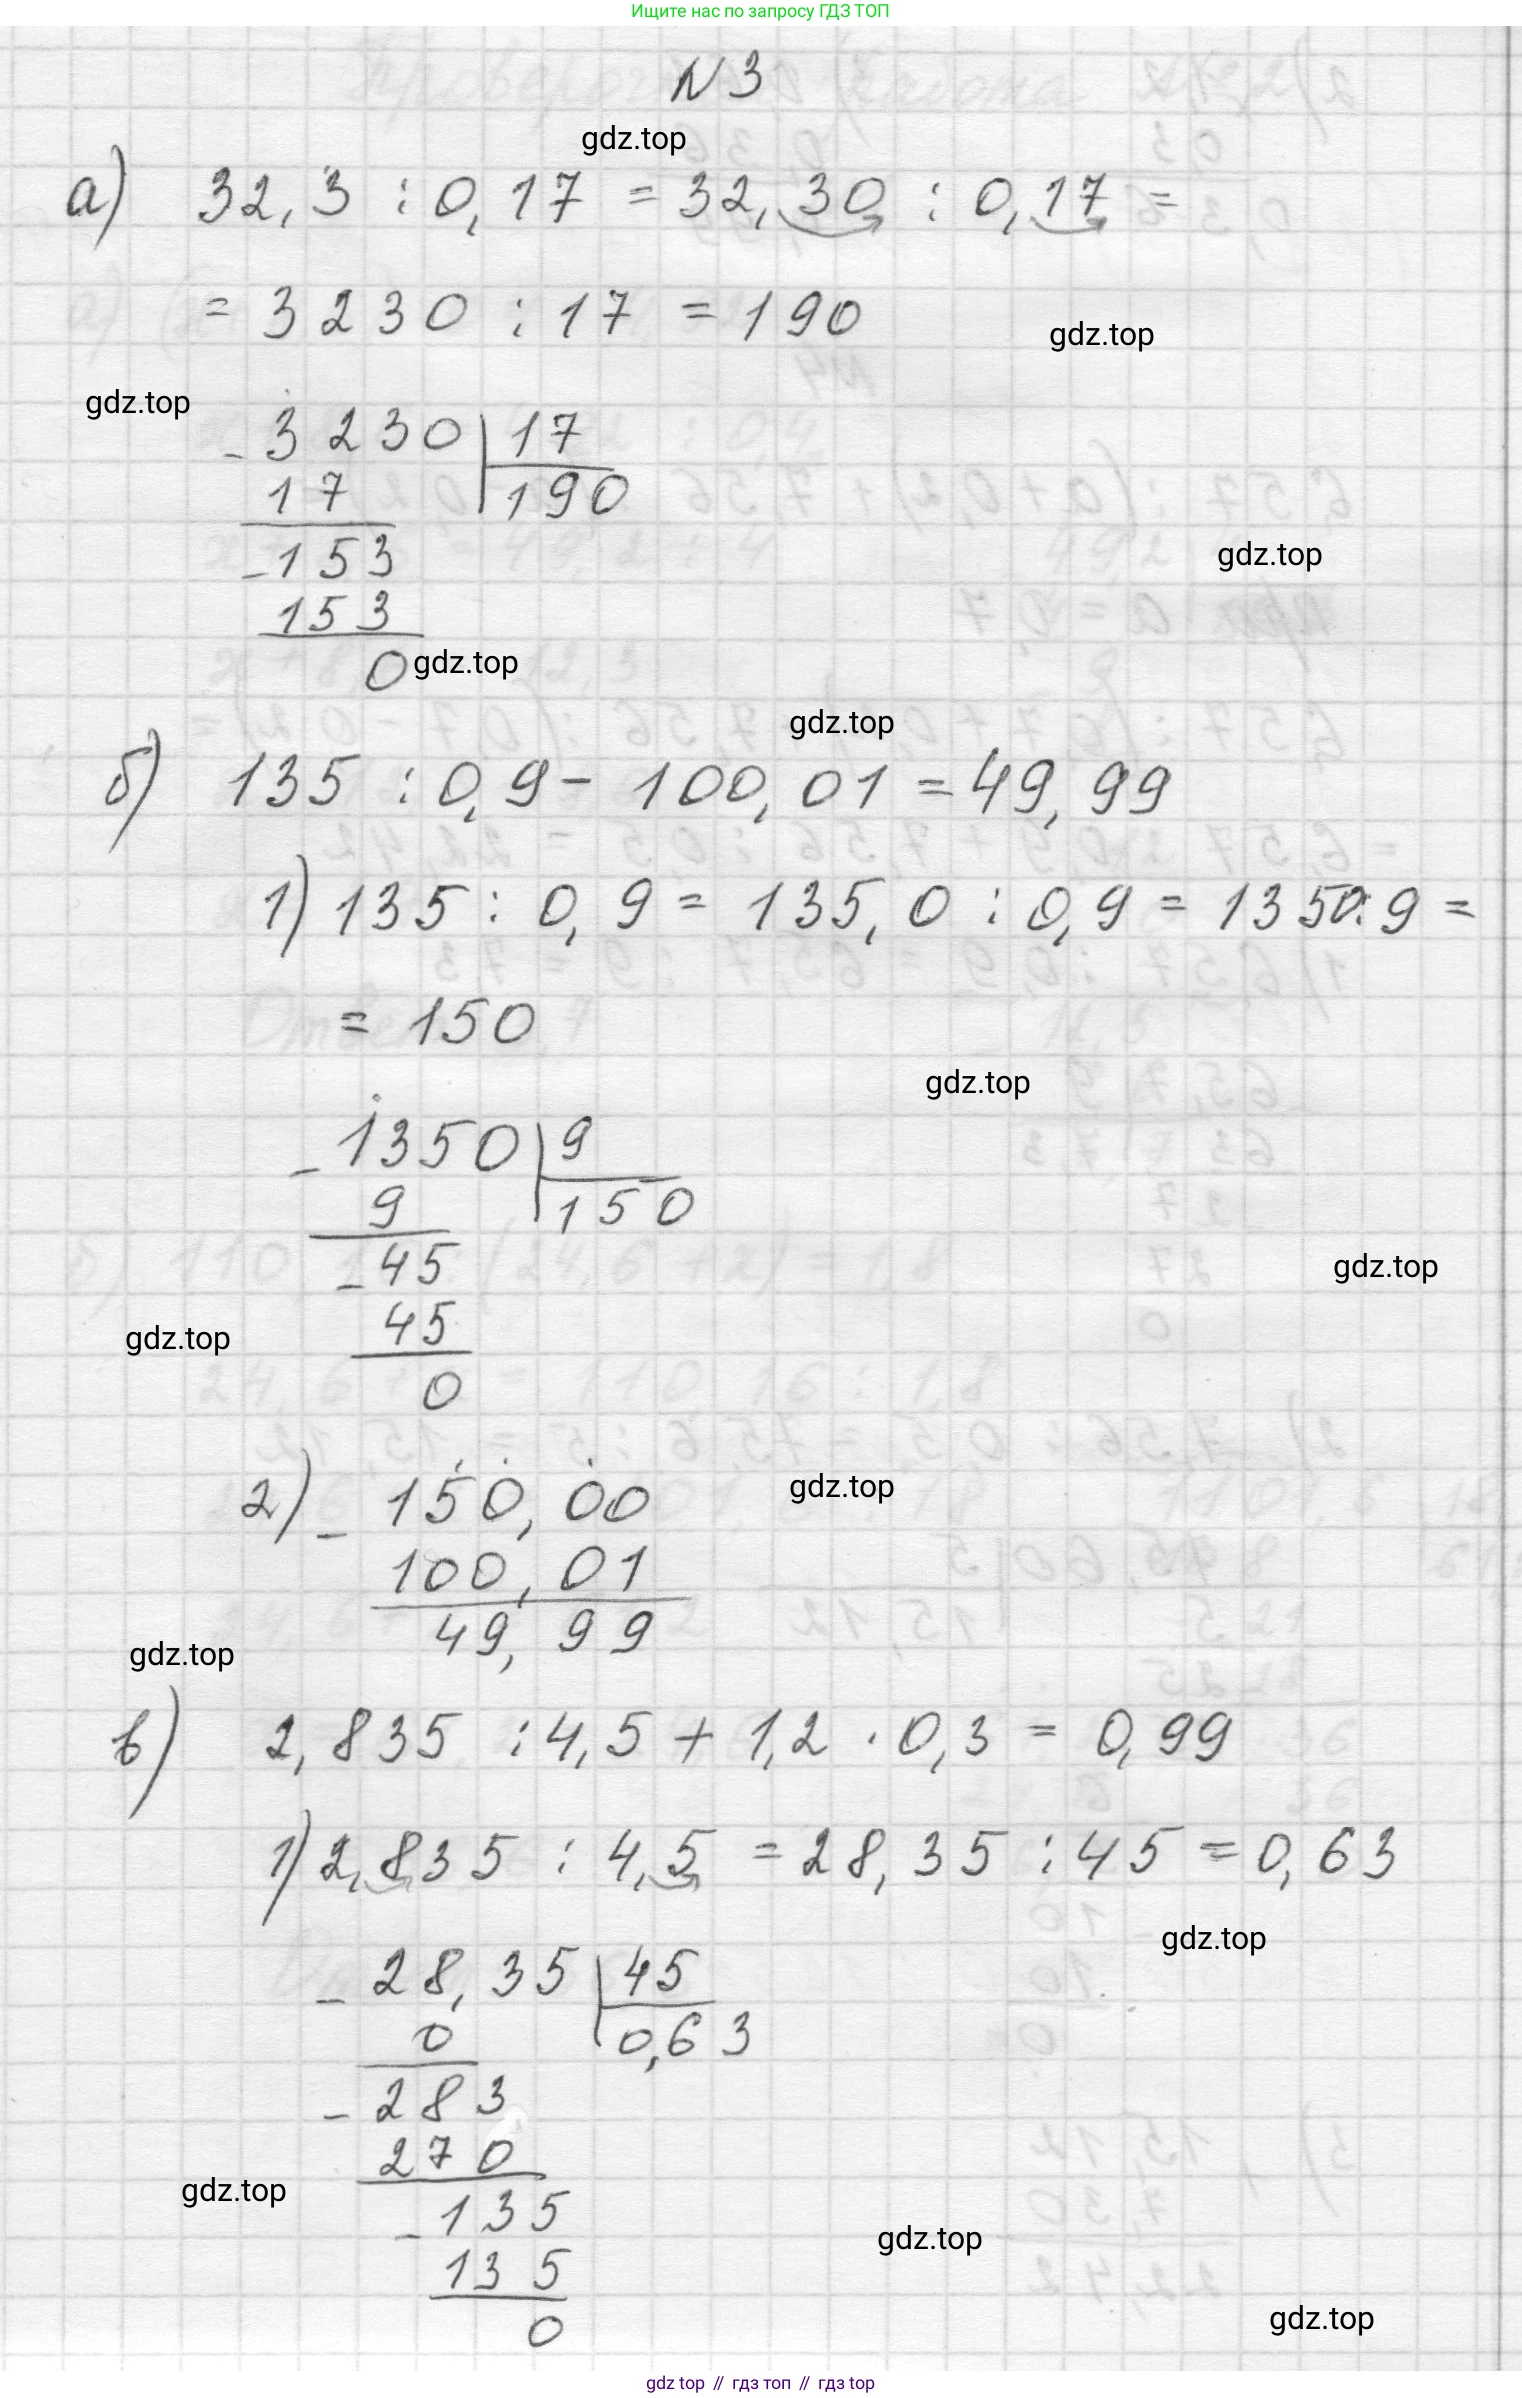 Ищите нас по запросу ГДЗ ТОП
N 3
gdz.top
а) 32,3 : 0,17 = 32,30 : 0,17 =
= 3230 : 17 = 190
gdz.top
gdz.top
- 3230 | 17
17 | 190
gdz.top
- 153
153
0
gdz.top
gdz.top
б) 135 : 0,9 - 100,01 = 49,99
1) 135 : 0,9 = 135,0 : 0,9 = 1350:9 =
= 150
gdz.top
- 1350 | 9
9 | 150
- 45
gdz.top
45
gdz.top
0
2) - 150,00
gdz.top
100,01
49,99
gdz.top
в) 2,835 : 4,5 + 1,2 · 0,3 = 0,99
1) 2,835 : 4,5 = 28,35 : 45 = 0,63
gdz.top
- 28,35 | 45
0 | 0,63
- 283
270
gdz.top
- 135
gdz.top
135
gdz.top
0
gdz top // гдз топ // гдз top